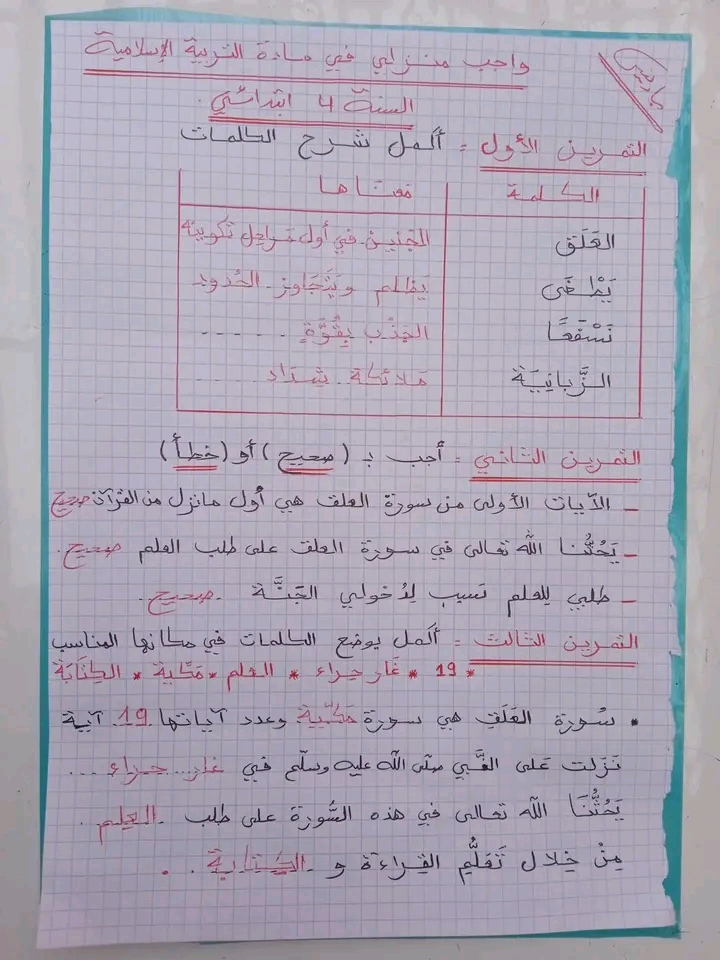 واجب منزلي في مادة التربية الإسلامية
السنة 4 ابتدائي.
التمرين الأول: أكمل شرح الكلمات
الكلمة معناها
العَلَق الجَنين في أول مراحل تكوينه
يَطْغَى يَظلم ويَتَجَاوز الحُدود
نَسْفَعًا الجَذْب بِقُوَّةٍ . . . . . .
الزَّبانِيَة مَلائكة شِدَاد . . . . .
التمرين الثاني: أجب بـ (صحيح) أو (خطأ)
– الآيات الأولى من سورة العلق هي أول ما نزل من القرآن صحيح
– يَحُثُّنا الله تعالى في سورة العلق على طلب العلم صحيح.
– طلبي للعلم سبب لِدُخولي الجَنَّة . صحيح.
التمرين الثالث: أكمل بوضع الكلمات في مكانها المناسب
* 19 * غَار حِراء * العلم * مَكّية * الكِتَابَة
• سُورة العَلَقِ هي سورة مَكّيّة وعدد آياتها 19. آية
نَزَلت عَلى النَّبي صلّى الله عليه وسلّم في غار.. حراء ...
يَحُثُّنَا الله تعالى في هذه السُّورة على طلب .العِلم .
مِنْ خِلال تَعَلُّم القِراءة و .الكتابة . .